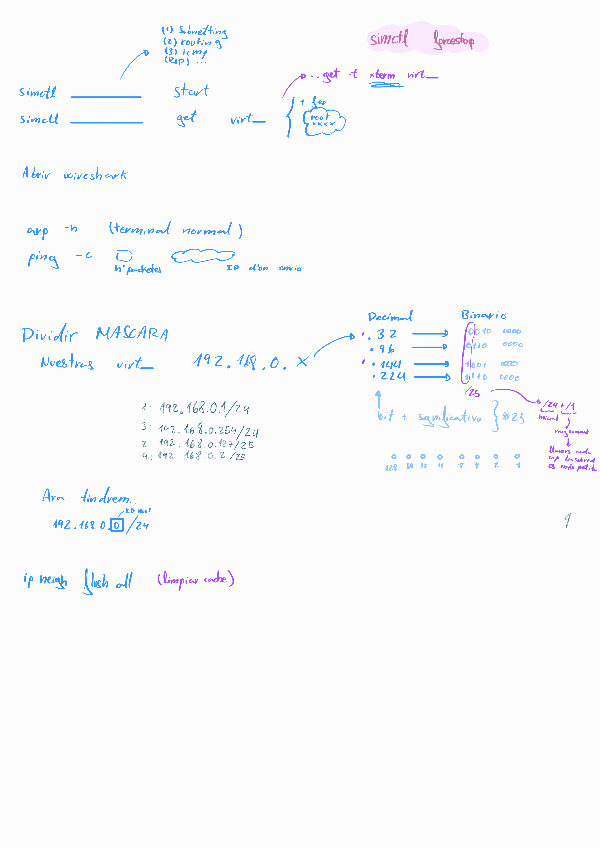 (1) Subnetting
(2) routing
(3) icmp
(RIP) ...
simctl forcestop
...get -t xterm virt_
simctl ________ start
simctl ________ get virt_
+ fer
root
xxxx
Abrir wireshark
arp -n (terminal normal)
ping -c
nº paquetes
IP d'on envio
Dividir MASCARA
Nuestras virt_ 192.168.0.X
Decimal Binario
.32 0010 0000
.96 0110 0000
.144 1001 0000
.224 1110 0000
/25
/24 + /1
bit + significativo
1. 192.168.0.1/24
3. 192.168.0.254/24
2. 192.168.0.127/25
4. 192.168.0.2/25
128 64 32 16 8 4 2 1
Ara tindrem..
192.168.0.0/24
ip neigh flush all (limpiar cache)